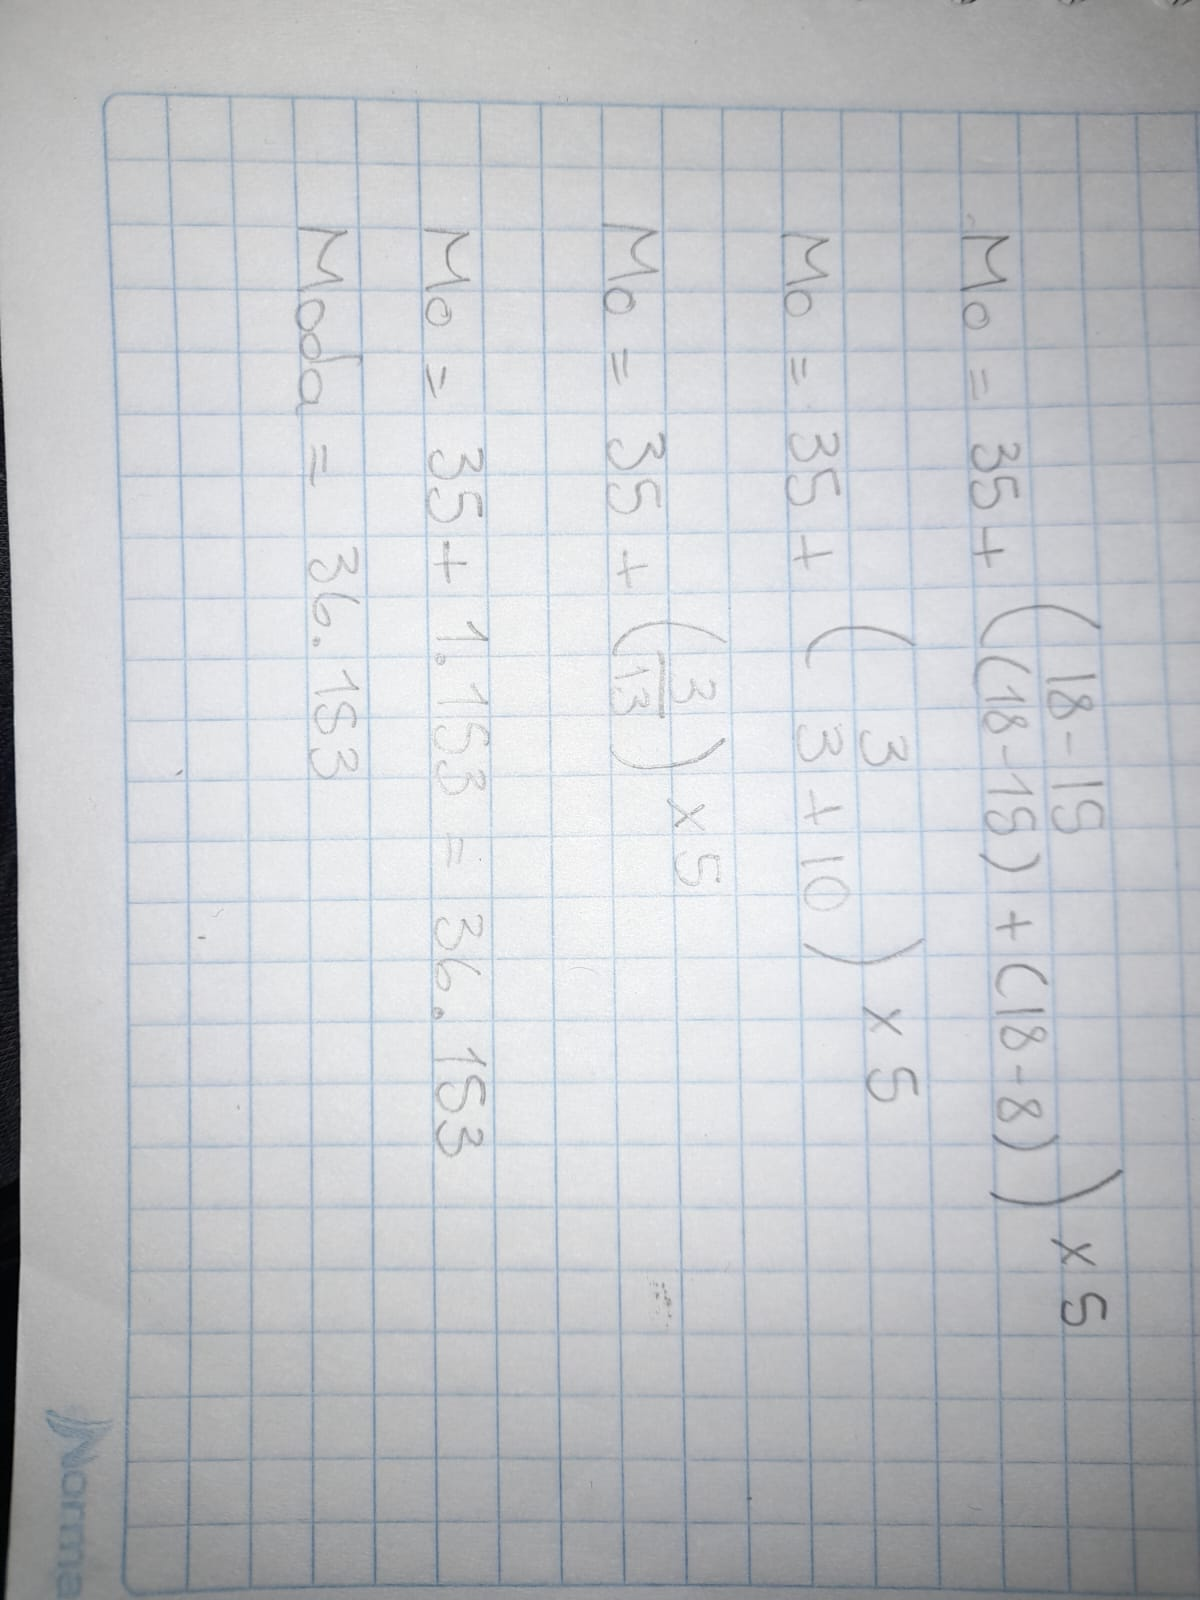 18-15
Mo = 35 + ((18-15) + (18-8)) x 5
3
Mo = 35 + (3 + 10) x 5
Mo = 35 + (3/13) x 5
Mo = 35 + 1.153 = 36.153
Moda = 36.153
Norma